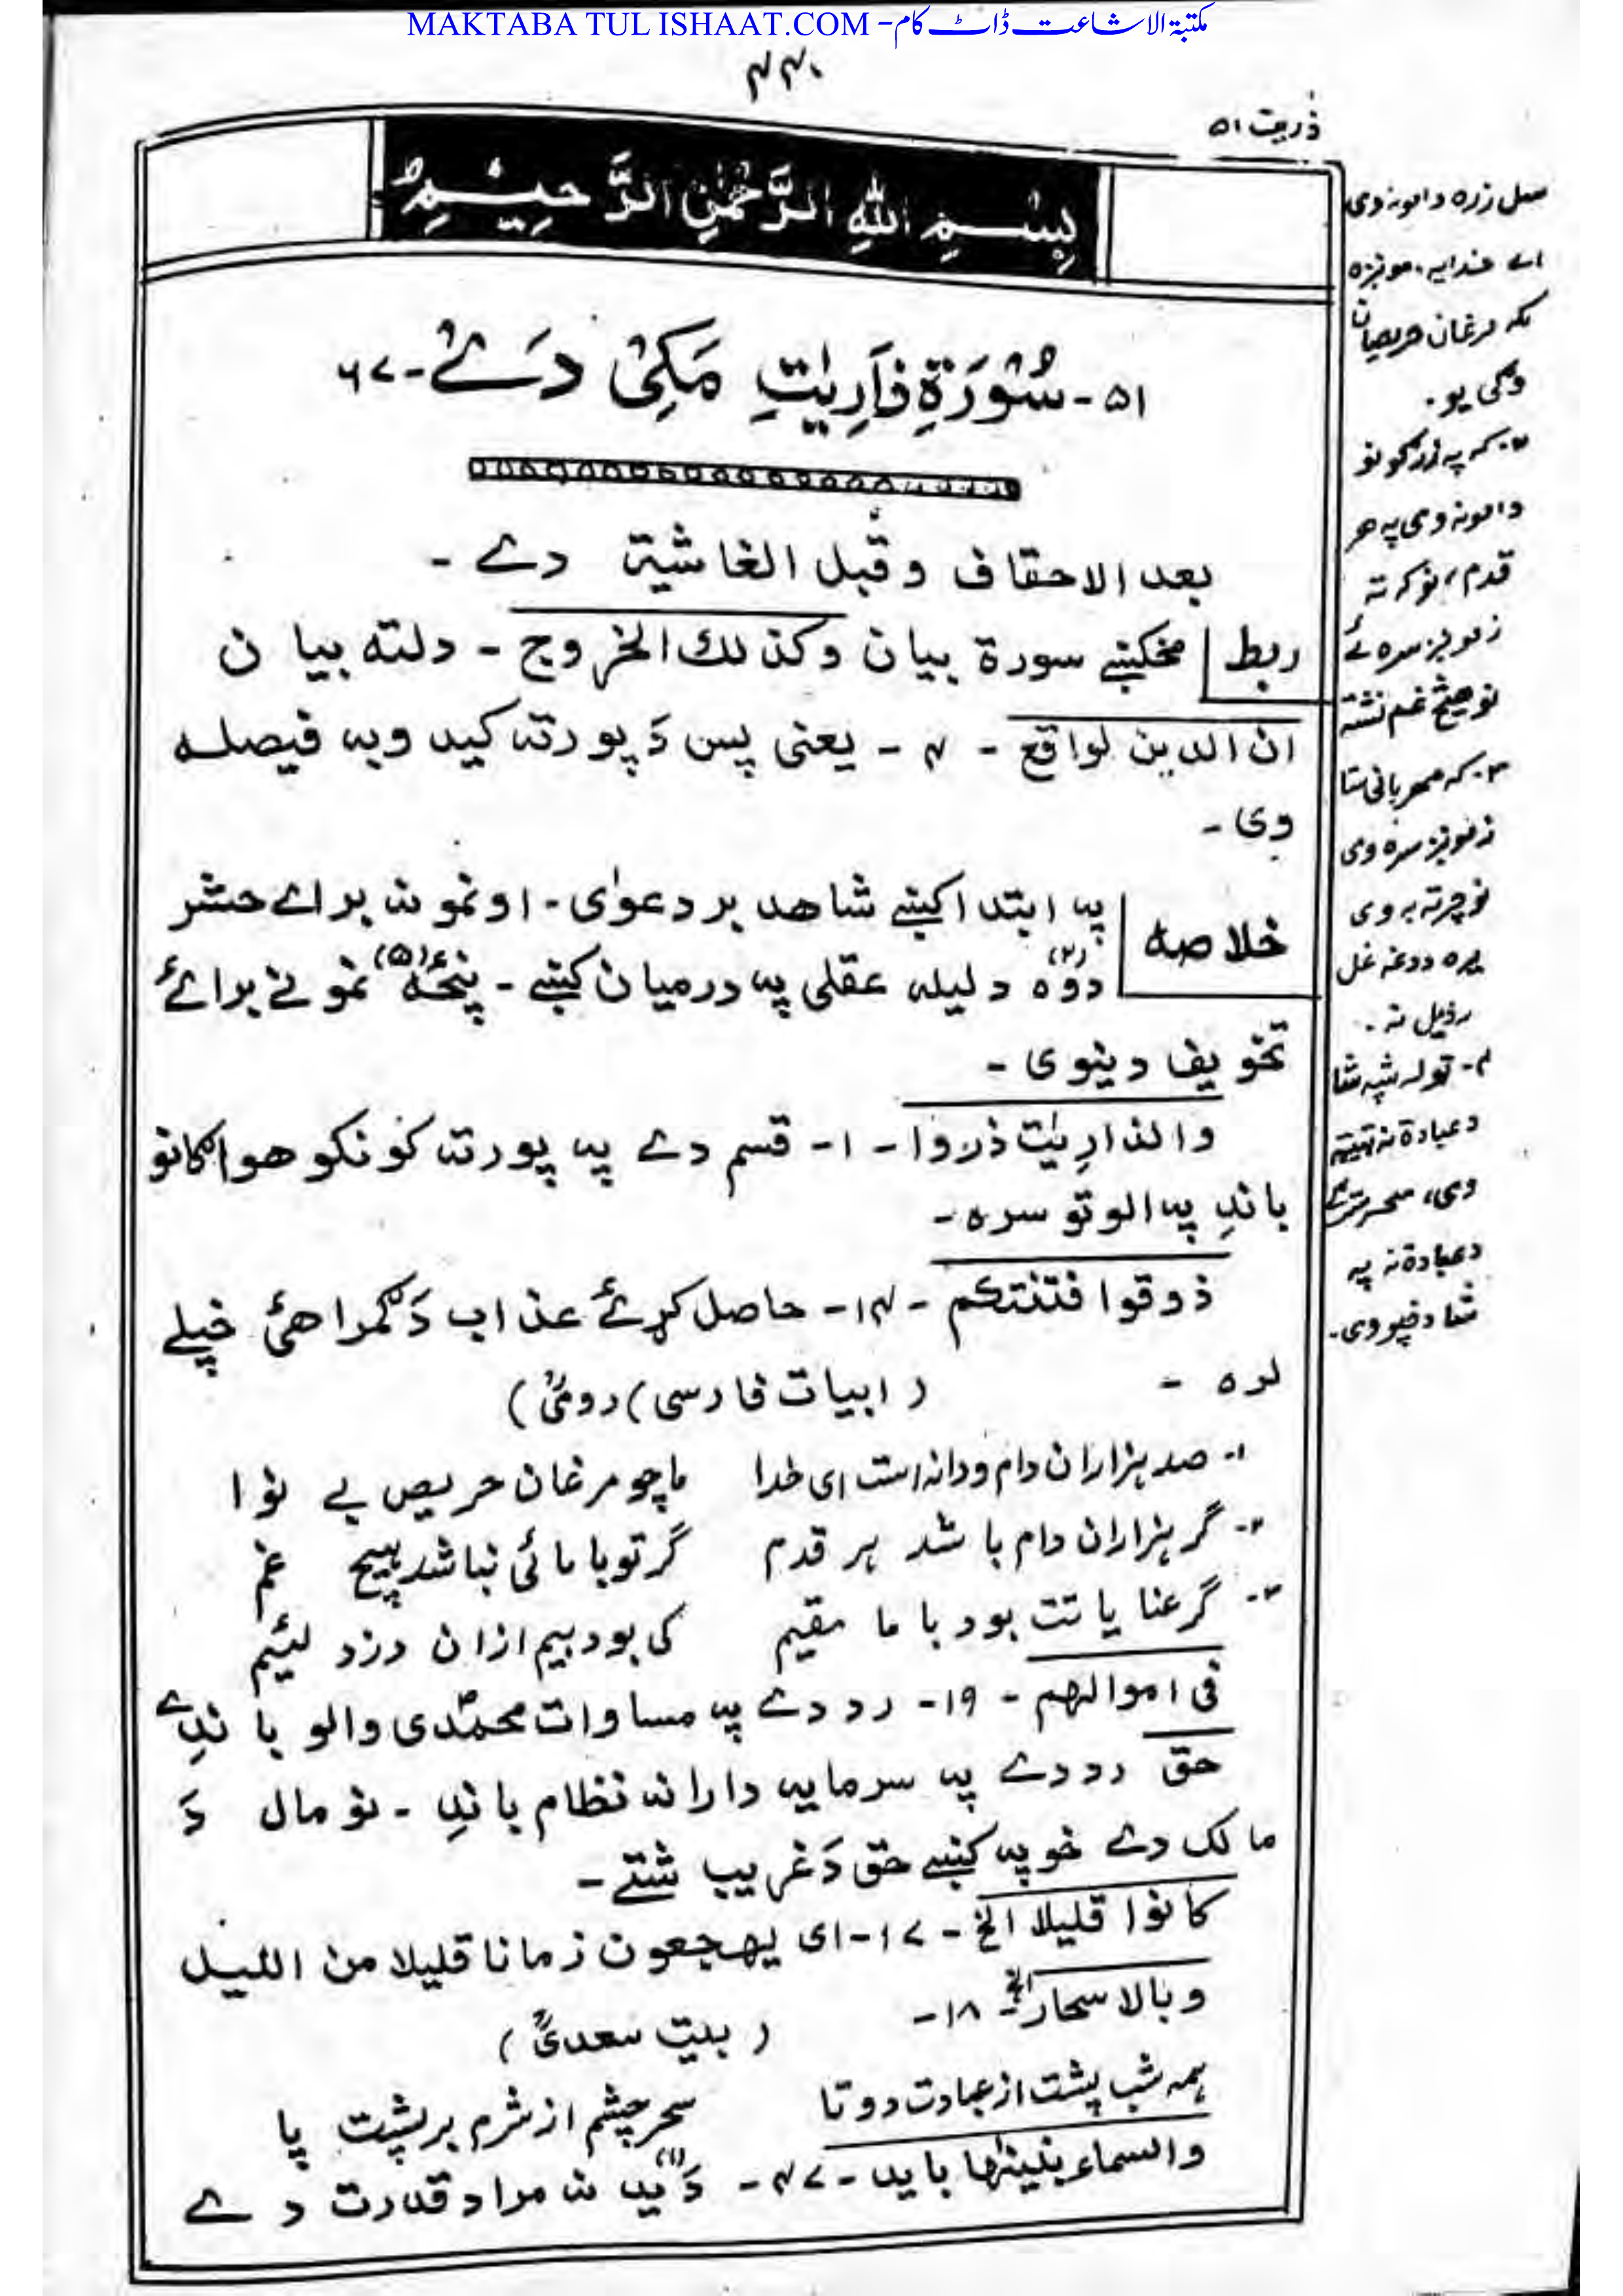 MAKTABA TUL ISHAAT.COM - مکتبۃ الاشاعت ڈاٹ کام
۴۴۰
ذریت ۵۱
بِسْمِ اللهِ الرَّحْمٰنِ الرَّحِيْمِ
۵۱- سُوْرَةِ ذَارِيٰتِ مَكِّیْ دَےْ- ۶۷
بعد الاحقاف وقبل الغاشیۃ دے -
ربط مخکښے سورۃ بیان وکذلك الخروج - دلته بیان
ان الدین لواقع - ۶ - یعنی پس دَ پورته کیدو به فیصله
وی -
خلاصه په ابتدا کښے شاهد بر دعوٰی - او نمونه برائے حشر
دوه (۲) دلیله عقلی په درمیان کښے - پنځه (۵) نمونے برائے
تخویف دینوی -
والذاریٰت ذروا - ۱- قسم دے په پورته کونکو هواګانو
باندِ په الوتو سره -
ذوقوا فتنتکم - ۱۴- حاصل کړئے عذاب دَ ګمراهئ خپلے
لره - (ابیات فارسی) (رومیؒ)
۱- صد ہزاران دام ودانہ است ای خدا ما چو مرغان حریص بے نوا
۲- گر ہزاران دام باشد ہر قدم گر تو با مائی نباشد ہیچ غم
۳- گر عنایاتت بود با ما مقیم کی بود بیم ازان دزد لئیم
فی اموالهم - ۱۹- رد دے په مساوات محمدی والو باندِے
حق رد دے په سرمایه دارانه نظام باندِ - نو مال دَ
مالک دے خو په کښے حق دَ غریب شتے -
کانوا قلیلا الخ - ۱۷- ای یهجعون زمانا قلیلا من اللیل
وبالاسحار الخ - ۱۸- (بیت سعدیؒ)
ہمہ شب پشت از عبادت دوتا سحر چشم از شرم بر پشت پا
والسماء بنینٰها باید - ۴۷- دَ ید (۱) نه مراد قدرت دے
سل زره دامونه دی
اے خدایه، مونږه
لکه مرغان حریصان
وږی یو.
۲- که په زرګونو
دامونه وی په هر
قدم، نو کر ته
زمونږ سره ئے
نو هیڅ غم نشته
۳- که مهربانی ستا
زمونږ سره وی
نو چرته به وی
یره د دغه غل
رذیل نه.
۴- توله شپه شا
د عبادة نه
وی، سحر سترګے
د عبادة نه په
شا د خپو وی.